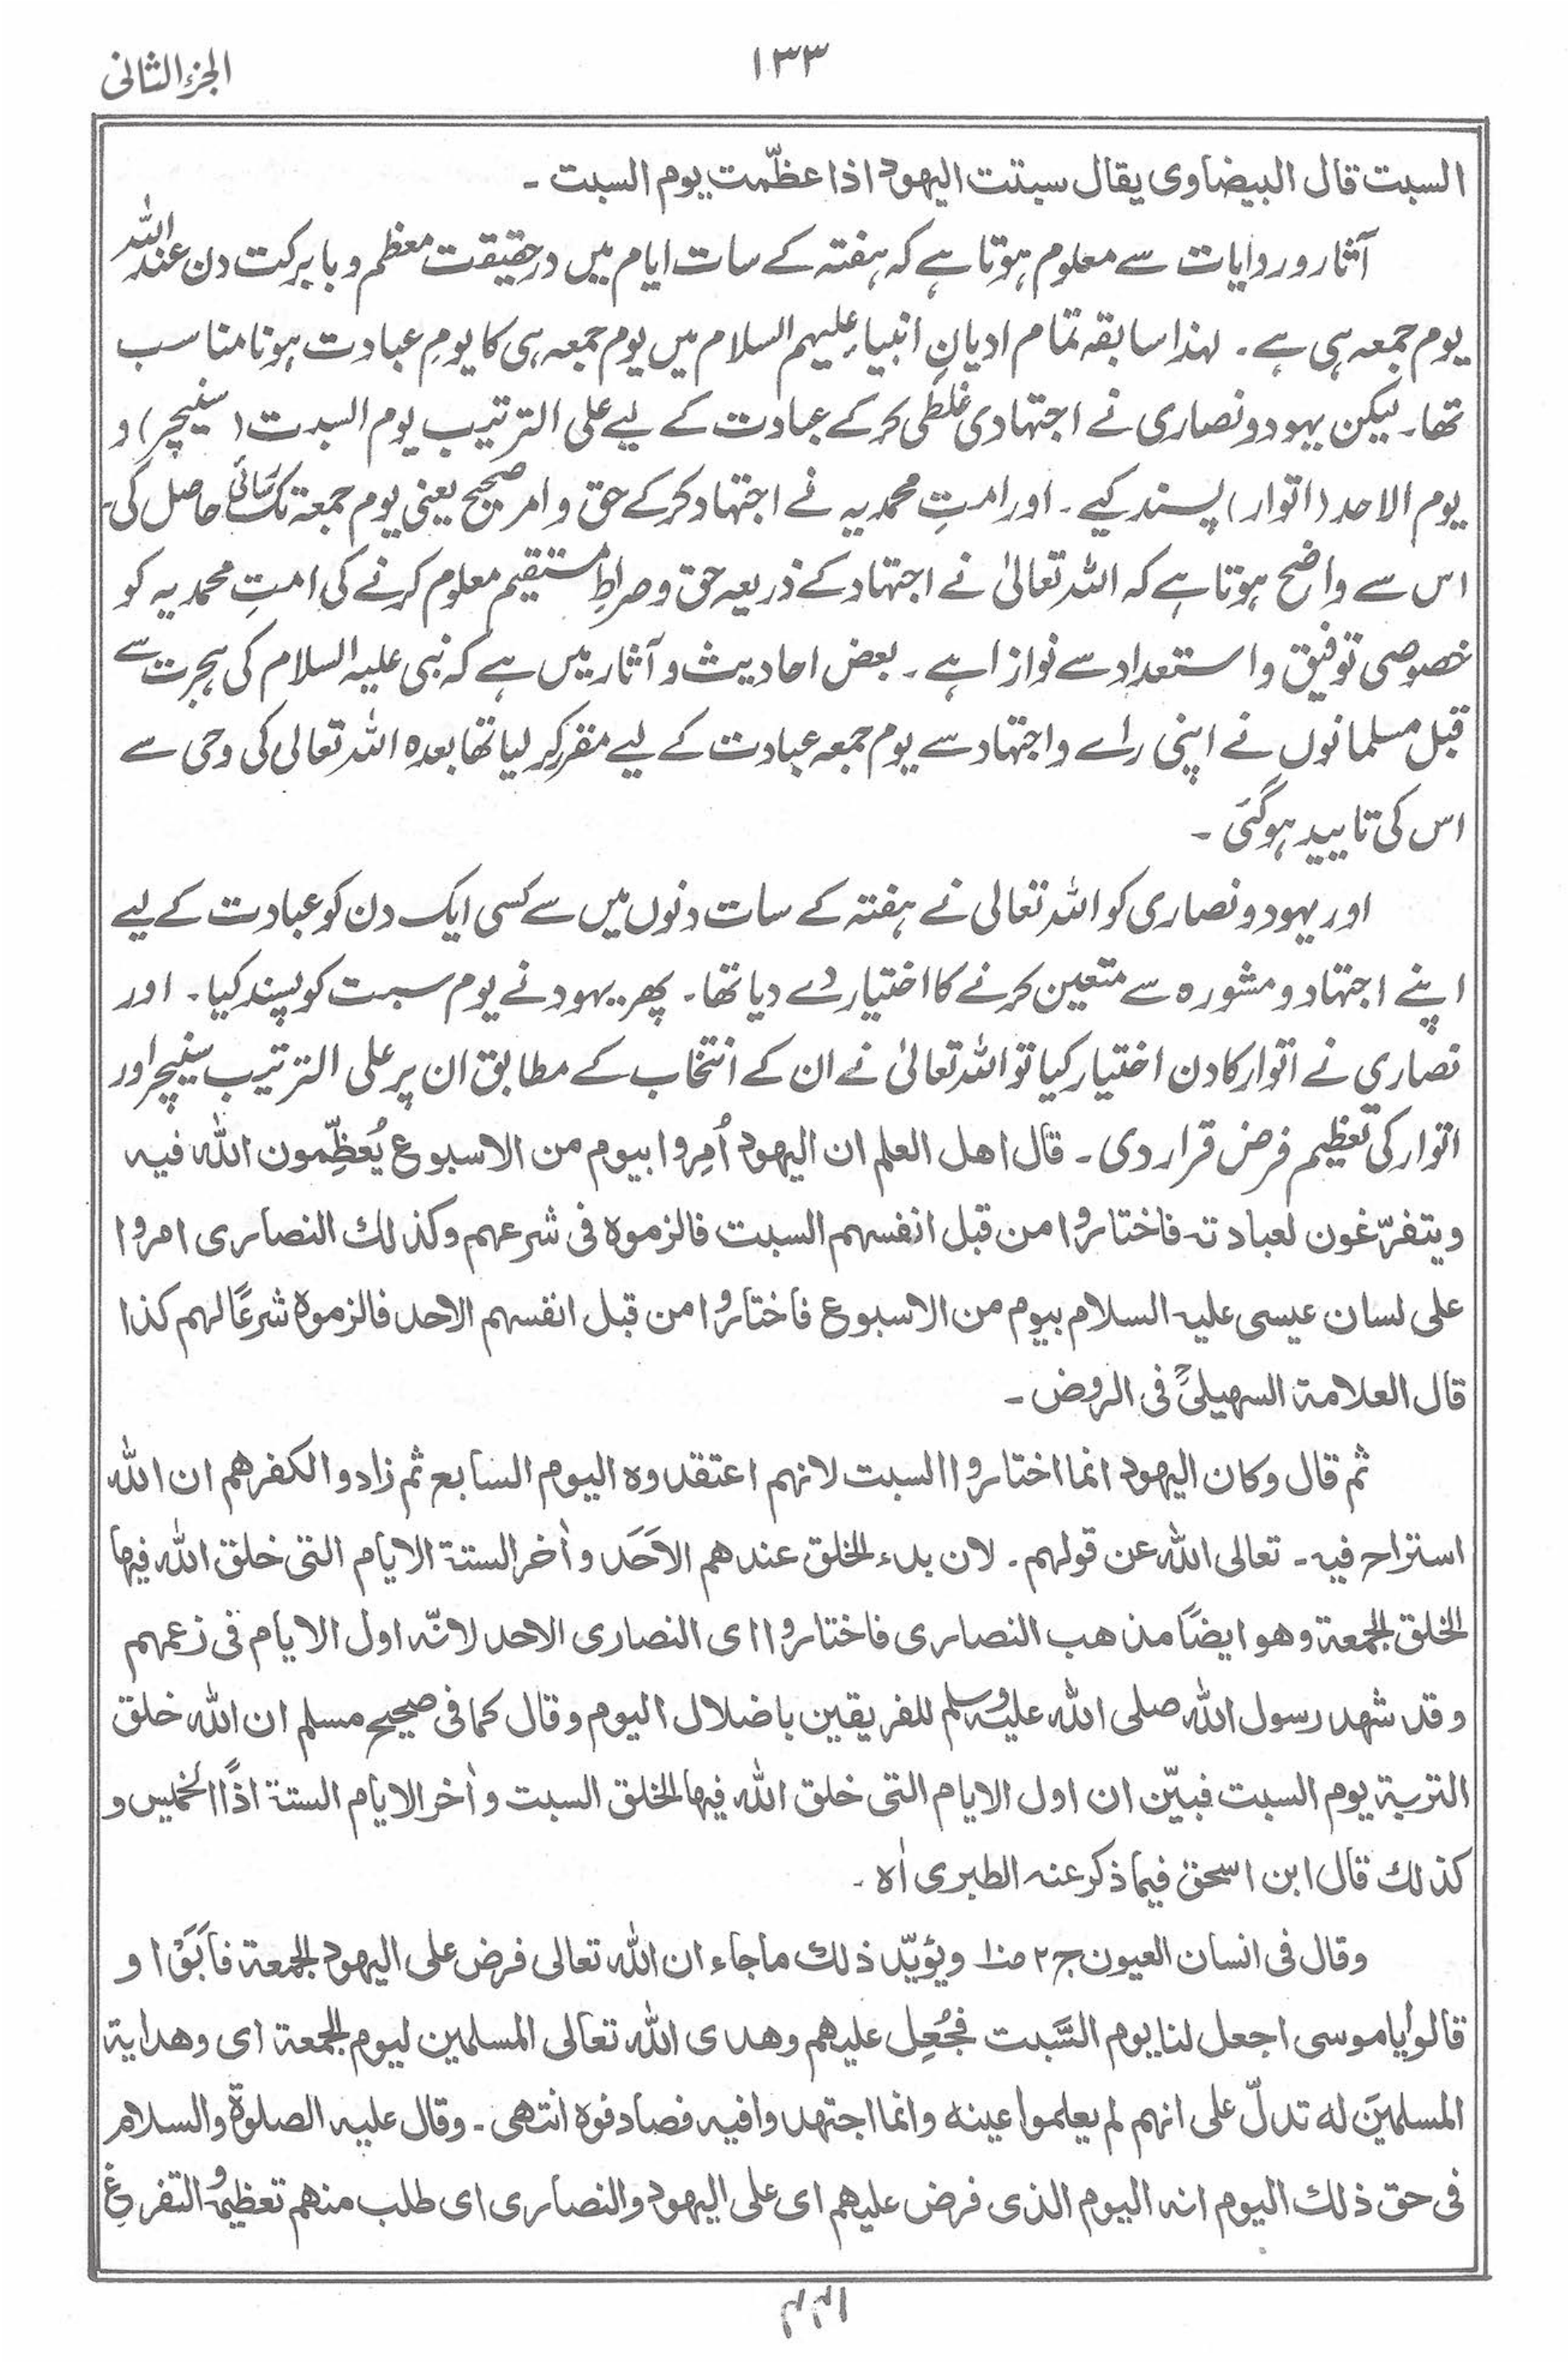 ١٣٣
الجزء الثانی
السبت قال البیضاوی یقال سبتت الیھود اذا عظّمت یوم السبت ۔
آثار و روایات سے معلوم ہوتا ہے کہ ہفتہ کے سات ایام میں درحقیقت معظم و بابرکت دن عند اللہ
یوم جمعہ ہی ہے ۔ لہذا سابقہ تمام ادیانِ انبیاءِ علیہم السلام میں یوم جمعہ ہی کا یومِ عبادت ہونا مناسب
تھا۔ لیکن یہود و نصاری نے اجتہادی غلطی کرکے عبادت کے لیے علی الترتیب یوم السبت (سنیچر) و
یوم الاحد (اتوار) پسند کیے ۔ اور امتِ محمدیہ نے اجتہاد کرکے حق و امر صحیح یعنی یوم جمعۃ تک رسائی حاصل کی۔
اس سے واضح ہوتا ہے کہ اللہ تعالیٰ نے اجتہاد کے ذریعہ حق و صراطِ مستقیم معلوم کرنے کی امتِ محمدیہ کو
خصوصی توفیق و استعداد سے نوازا ہے ۔ بعض احادیث و آثار میں ہے کہ نبی علیہ السلام کی ہجرت سے
قبل مسلمانوں نے اپنی راے و اجتہاد سے یوم جمعہ عبادت کے لیے مقرر کر لیا تھا بعدہ اللہ تعالی کی وحی سے
اس کی تایید ہوگئی ۔
اور یہود و نصاری کو اللہ تعالی نے ہفتہ کے سات دنوں میں سے کسی ایک دن کو عبادت کے لیے
اپنے اجتہاد و مشورہ سے متعین کرنے کا اختیار دے دیا تھا ۔ پھر یہود نے یوم سبت کو پسند کیا ۔ اور
نصاری نے اتوار کا دن اختیار کیا تو اللہ تعالیٰ نے ان کے انتخاب کے مطابق ان پر علی الترتیب سنیچر اور
اتوار کی تعظیم فرض قرار دی ۔ قال اھل العلم ان الیھود اُمِروا بیوم من الاسبوع یُعظِّمون اللہ فیہ
ویتفرّغون لعبادتہ فاختاروا من قبل انفسھم السبت فالزموہ فی شرعھم وکذلك النصاری امروا
علی لسان عیسی علیہ السلام بیوم من الاسبوع فاختاروا من قبل انفسھم الاحد فالزموہ شرعًا لھم کذا
قال العلامۃ السھیلیؒ فی الروض ۔
ثم قال وکان الیھود انما اختاروا السبت لانھم اعتقدوہ الیوم السابع ثم زادوا لکفرھم ان اللہ
استراح فیہ ۔ تعالی اللہ عن قولھم ۔ لان بدء الخلق عندھم الاَحَد واٰخر الستۃ الایام التی خلق اللہ فیھا
الخلق الجمعۃ وھو ایضًا مذھب النصاری فاختاروا ای النصاری الاحد لانّہ اول الایام فی زعمھم
وقد شھد رسول اللہ صلی اللہ علیہ وسلم للفریقین باضلال الیوم وقال کما فی صحیح مسلم ان اللہ خلق
التربۃ یوم السبت فبیّن ان اول الایام التی خلق اللہ فیھا الخلق السبت واٰخر الایام الستۃ اذًا الخمیس و
کذلك قال ابن اسحٰق فیما ذکر عنہ الطبری اٰہ ۔
وقال فی انسان العیون ج ۲ ص۱۰ ویؤیّد ذلك ما جاء ان اللہ تعالی فرض علی الیھود الجمعۃ فاَبَوْا و
قالوا یا موسی اجعل لنا یوم السَّبت فجُعِل علیھم وھدی اللہ تعالی المسلمین لیوم الجمعۃ ای وھدایۃ
المسلمین لہ تدلّ علی انھم لم یعلموا عینہ وانما اجتھدوا فیہ فصادفوہ انتھی ۔ وقال علیہ الصلوۃ والسلام
فی حق ذلك الیوم انہ الیوم الذی فرض علیھم ای علی الیھود والنصاری ای طلب منھم تعظیمُہ والتفرغِ